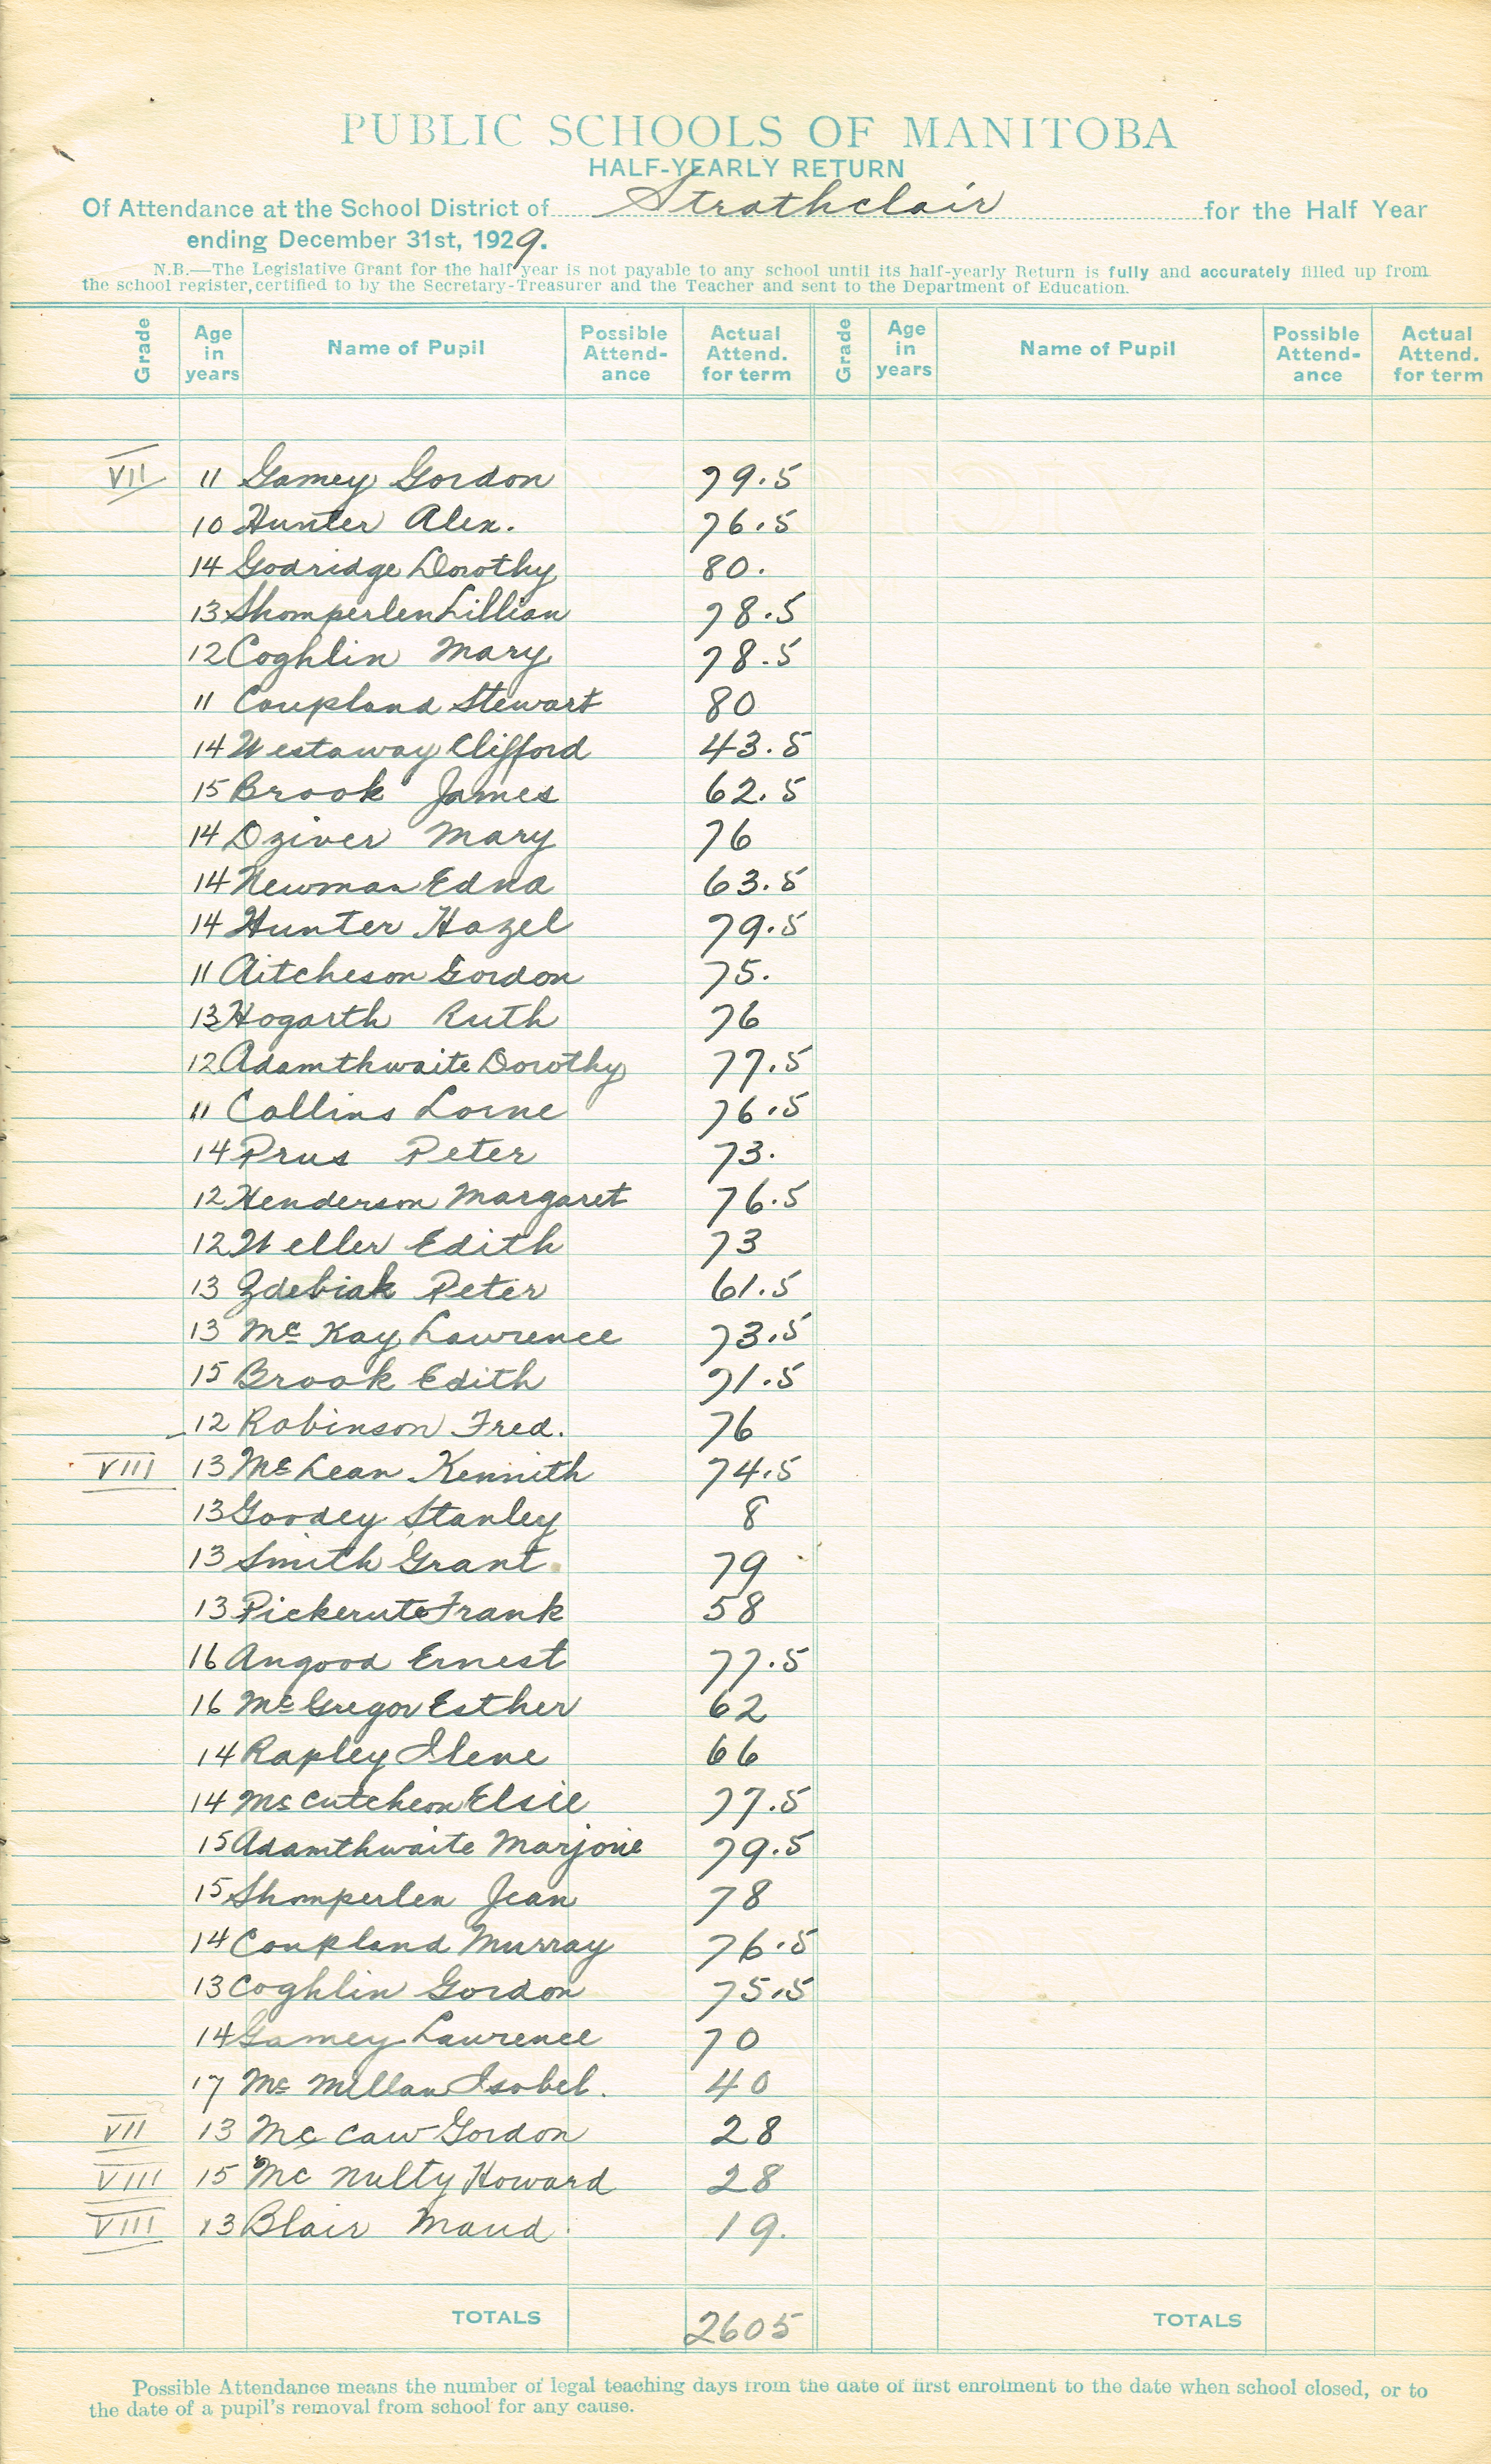 PUBLIC SCHOOLS OF MANITOBA
HALF-YEARLY RETURN
Of Attendance at the School District of Strathclair for the Half Year
ending December 31st, 1929.
N.B.—The Legislative Grant for the half year is not payable to any school until its half-yearly Return is fully and accurately filled up from
the school register, certified to by the Secretary-Treasurer and the Teacher and sent to the Department of Education.
Grade Age in years Name of Pupil Possible Attend-ance Actual Attend. for term Grade Age in years Name of Pupil Possible Attend-ance Actual Attend. for term
VII 11 Gamey Gordon 79.5
10 Hunter Alex. 76.5
14 Godridge Dorothy 80.
13 Shomperlen Lillian 78.5
12 Coghlin Mary 78.5
11 Coupland Stewart 80
14 Westaway Clifford 43.5
15 Brook James 62.5
14 Dziver Mary 76
14 Newman Edna 63.5
14 Hunter Hazel 79.5
11 Aitcheson Gordon 75.
13 Hogarth Ruth 76
12 Adamthwaite Dorothy 77.5
11 Collins Lorne 76.5
14 Prus Peter 73.
12 Henderson Margaret 76.5
12 Weller Edith 73
13 Zdebiak Peter 61.5
13 Mc Kay Lawrence 73.5
15 Brook Edith 71.5
12 Robinson Fred. 76
VIII 13 Mc Lean Kennith 74.5
13 Goodey Stanley 8
13 Smith Grant 79
13 Pickerute Frank 58
16 Angood Ernest 77.5
16 Mc Gregor Esther 62
14 Rapley Ilene 66
14 Mc Cutcheon Elsie 77.5
15 Adamthwaite Marjorie 79.5
15 Shomperlen Jean 78
14 Coupland Murray 76.5
13 Coghlin Gordon 75.5
14 Gamey Lawrence 70
17 Mc Millan Isobel. 40
VII 13 Mc Caw Gordon 28
VIII 15 Mc Nulty Howard 28
VIII 13 Blair Maud 19.
TOTALS 2605 TOTALS
Possible Attendance means the number of legal teaching days from the date of first enrolment to the date when school closed, or to
the date of a pupil's removal from school for any cause.